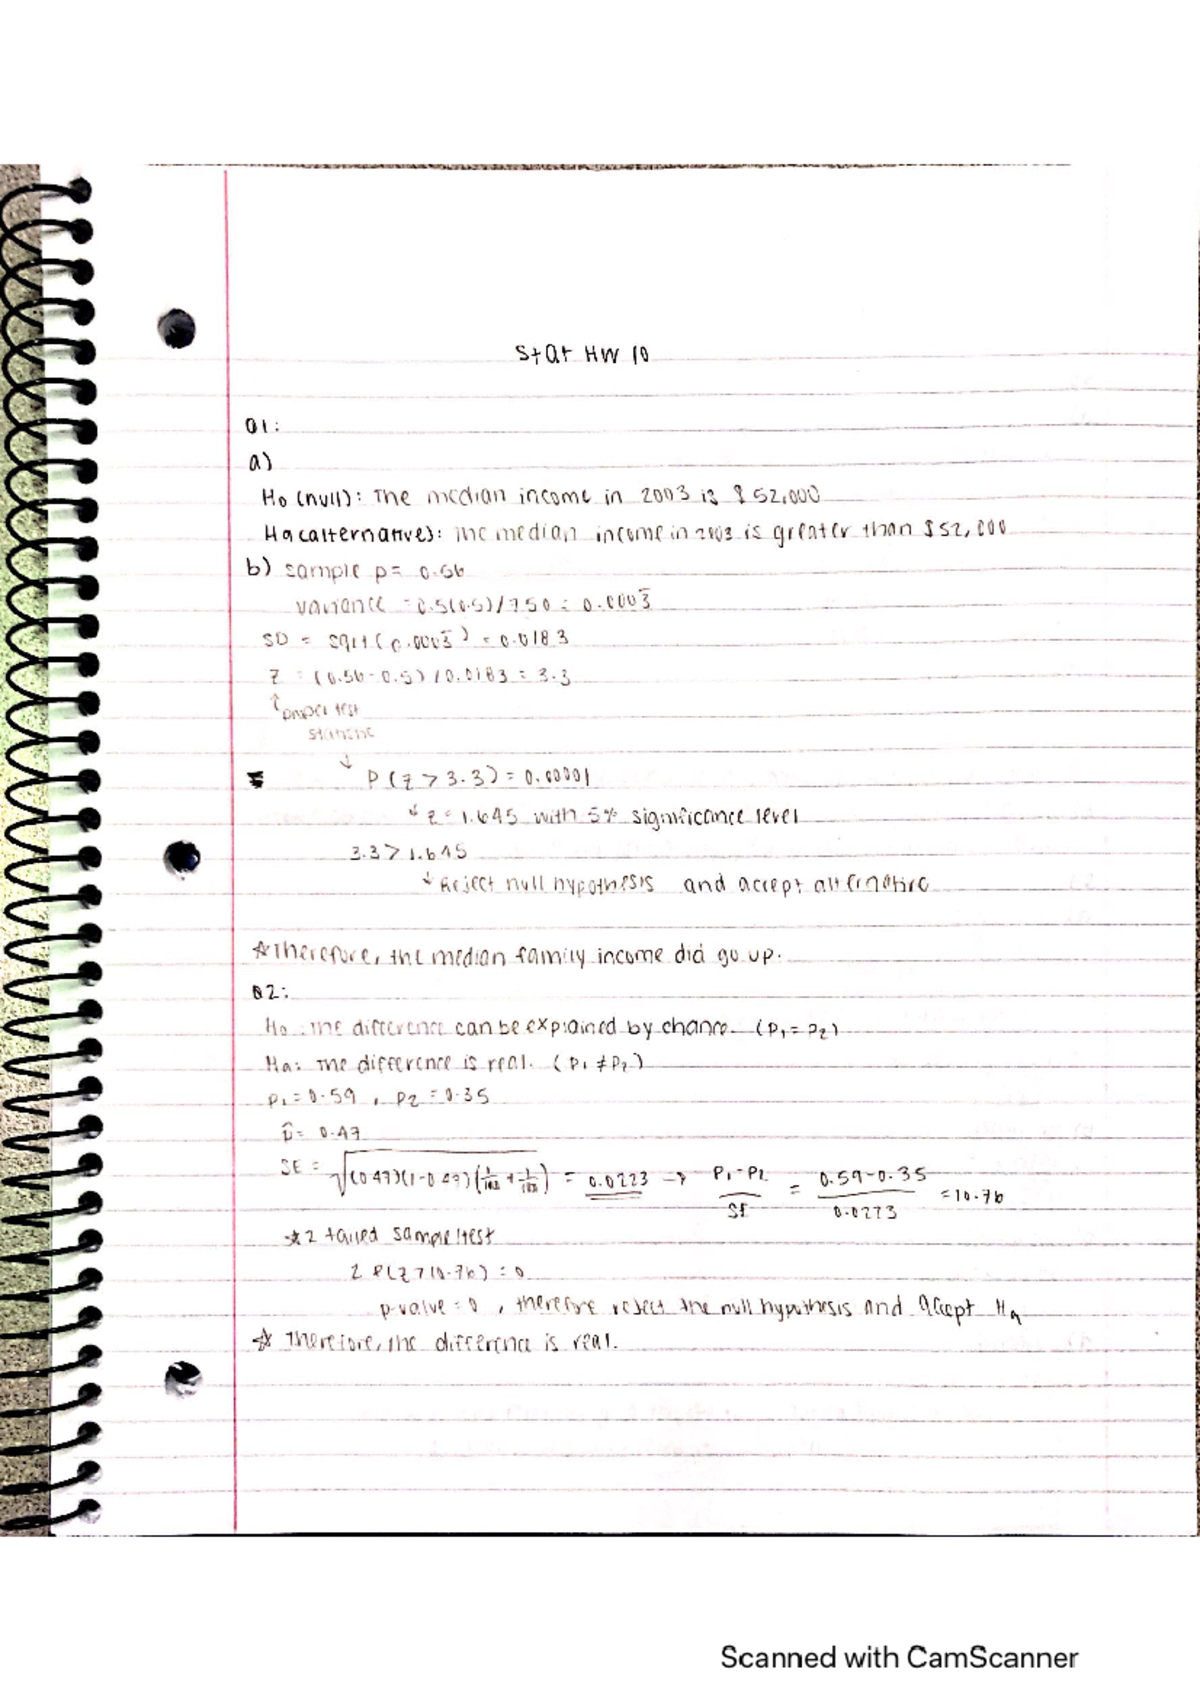 Stat HW 10
Q1:
a)
Ho (null): The median income in 2003 is $52,000
Ha (alternative): The median income in 2003 is greater than $52,000
b) sample p = 0.56
variance = 0.5(0.5)/750 = 0.0003̅
SD = sqrt(0.0003̅) = 0.0183
Z = (0.56-0.5)/0.0183 = 3.3
↑ proper test
statistic
↓
P(Z > 3.3) = 0.00001
↓ Z = 1.645 with 5% significance level
3.3 > 1.645
↓ Reject null hypothesis and accept alternative
☆ Therefore, the median family income did go up.
Q2:
Ho: The difference can be explained by chance. (P₁ = P₂)
Ha: The difference is real. (P₁ ≠ P₂)
P₁ = 0.59, P2 = 0.35
p̂ = 0.47
SE = √(0.47)(1-0.47)( + ) = 0.0223 → P₁-P₂ / SE = 0.59-0.35 / 0.0223 = 10.76
☆ 2 tailed sample test
2 P(Z > 10.76) = 0
p-value = 0, therefore reject the null hypothesis and accept Ha
☆ Therefore, the difference is real.
Scanned with CamScanner